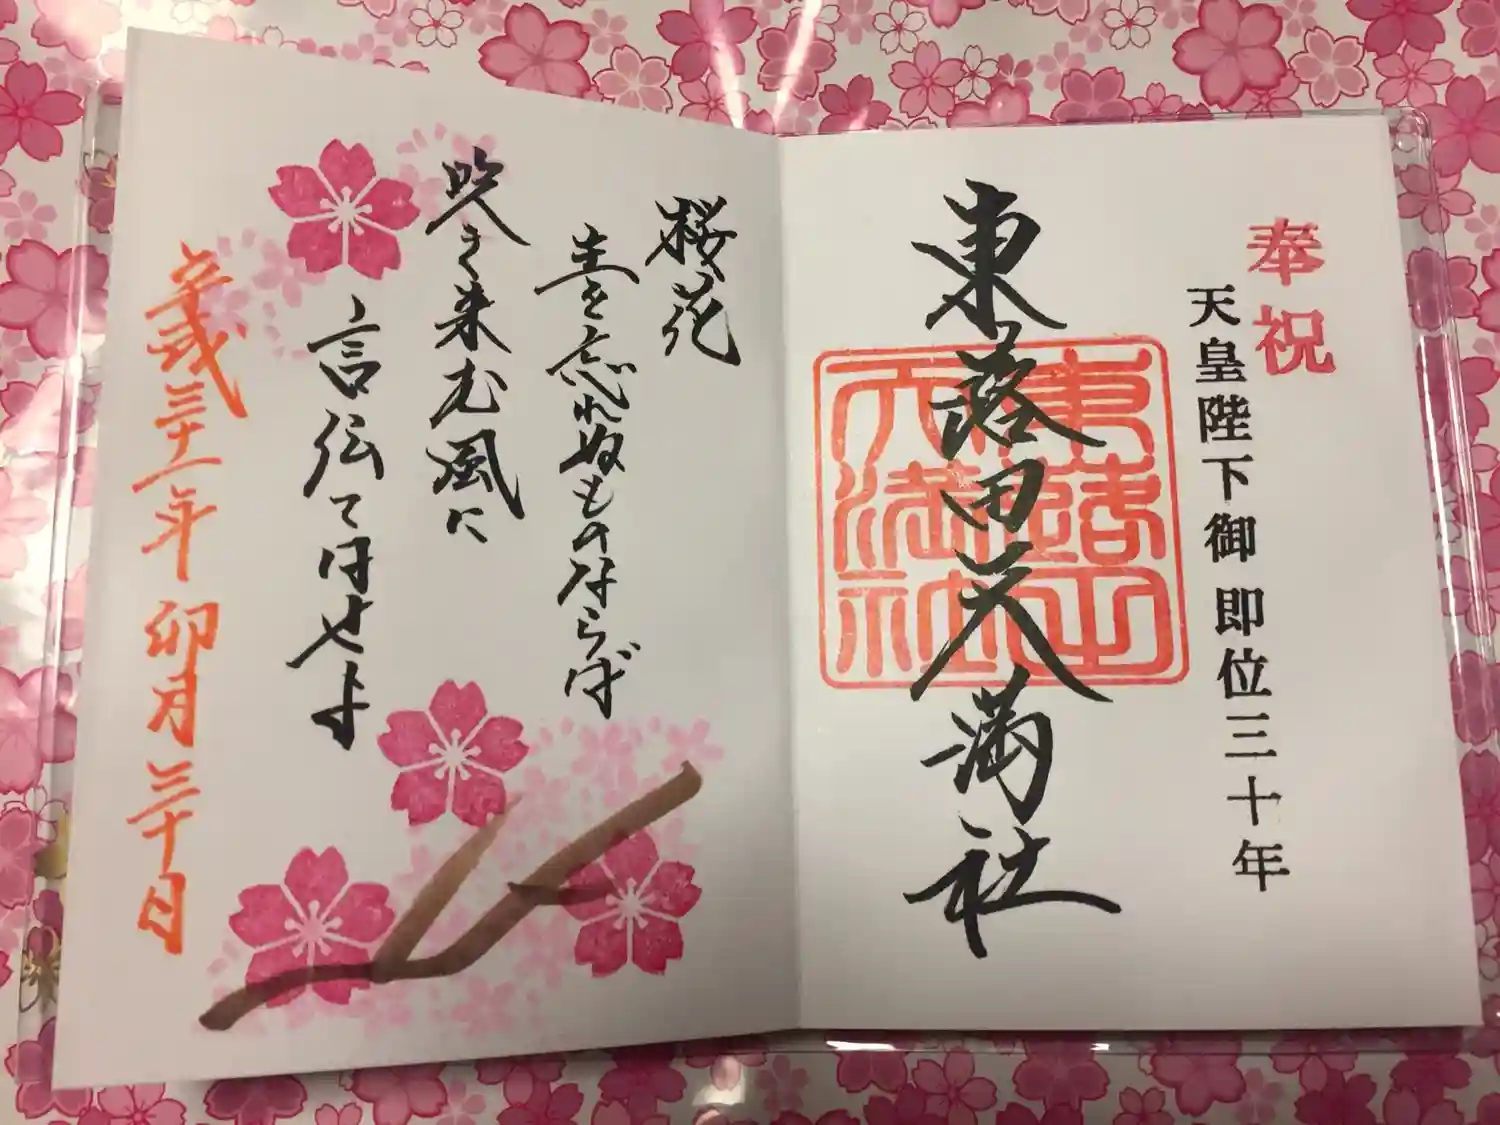 奉祝
天皇陛下御即位三十年
東蕗田天満社
東蕗田
天満社
桜花
主を忘れぬものならば
吹き来む風に
言伝てはせよ
平成三十一年 卯月 三十日